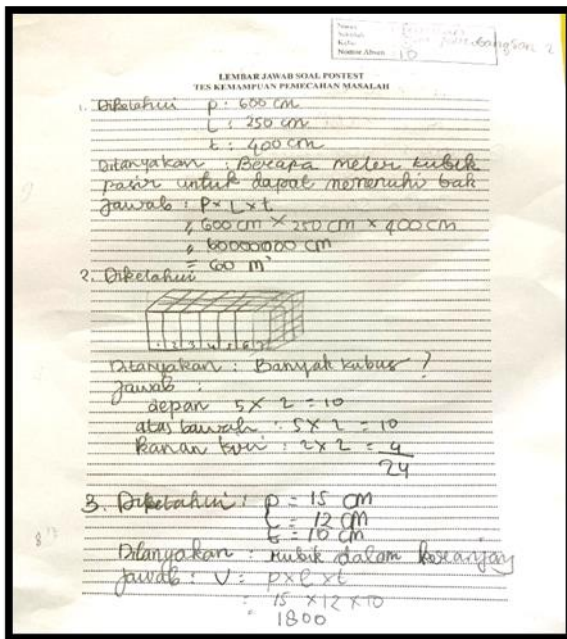 Nama
Sekolah
Kelas
Nomor Absen : 10
LEMBAR JAWAB SOAL POSTEST
TES KEMAMPUAN PEMECAHAN MASALAH
1. Diketahui p : 600 cm
L : 250 cm
t : 400 cm
Ditanyakan : Berapa meter kubik
pasir untuk dapat memenuhi bak
Jawab : P × L × t
= 600 cm × 250 cm × 400 cm
= 60000000 cm
= 600 m³
2. Diketahui
1 2 3 4 5 6 7
Ditanyakan : Banyak kubus ?
Jawab :
depan 5 × 2 = 10
atas bawah : 5 × 2 = 10
Kanan kiri : 2 × 2 = 4
24
3. Diketahui : p = 15 cm
L = 12 cm
t = 10 cm
Ditanyakan : rubik dalam keranjang
Jawab : V : p × l × t
= 15 × 12 × 10
= 1800